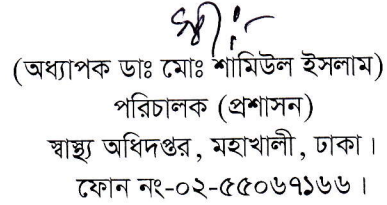 স্বাঃ-
(অধ্যাপক ডাঃ মোঃ শামিউল ইসলাম)
পরিচালক (প্রশাসন)
স্বাস্থ্য অধিদপ্তর, মহাখালী, ঢাকা।
ফোন নং-০২-৫৫০৬৭১৬৬।